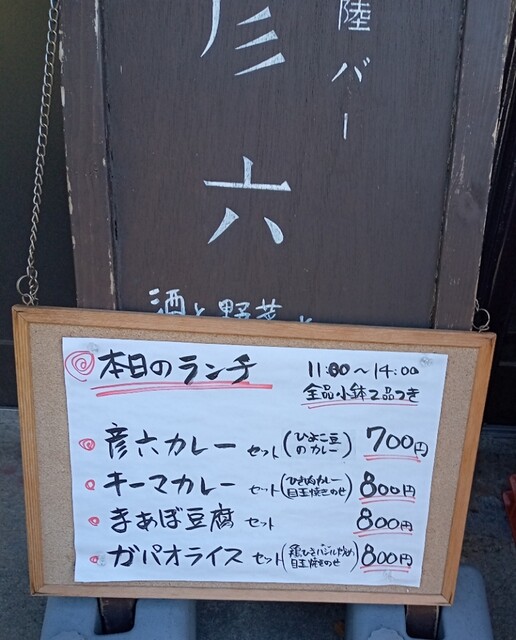 陸バー
彦六
酒と野菜と
本日のランチ
11:00～14:00
全品小鉢2品つき
彦六カレー セット(ひよこ豆のカレー) 700円
キーマカレー セット(ひき肉カレー目玉焼きのせ) 800円
まぁぼ豆腐 セット 800円
ガパオライス セット(鶏ひきバジル炒め目玉焼きのせ) 800円